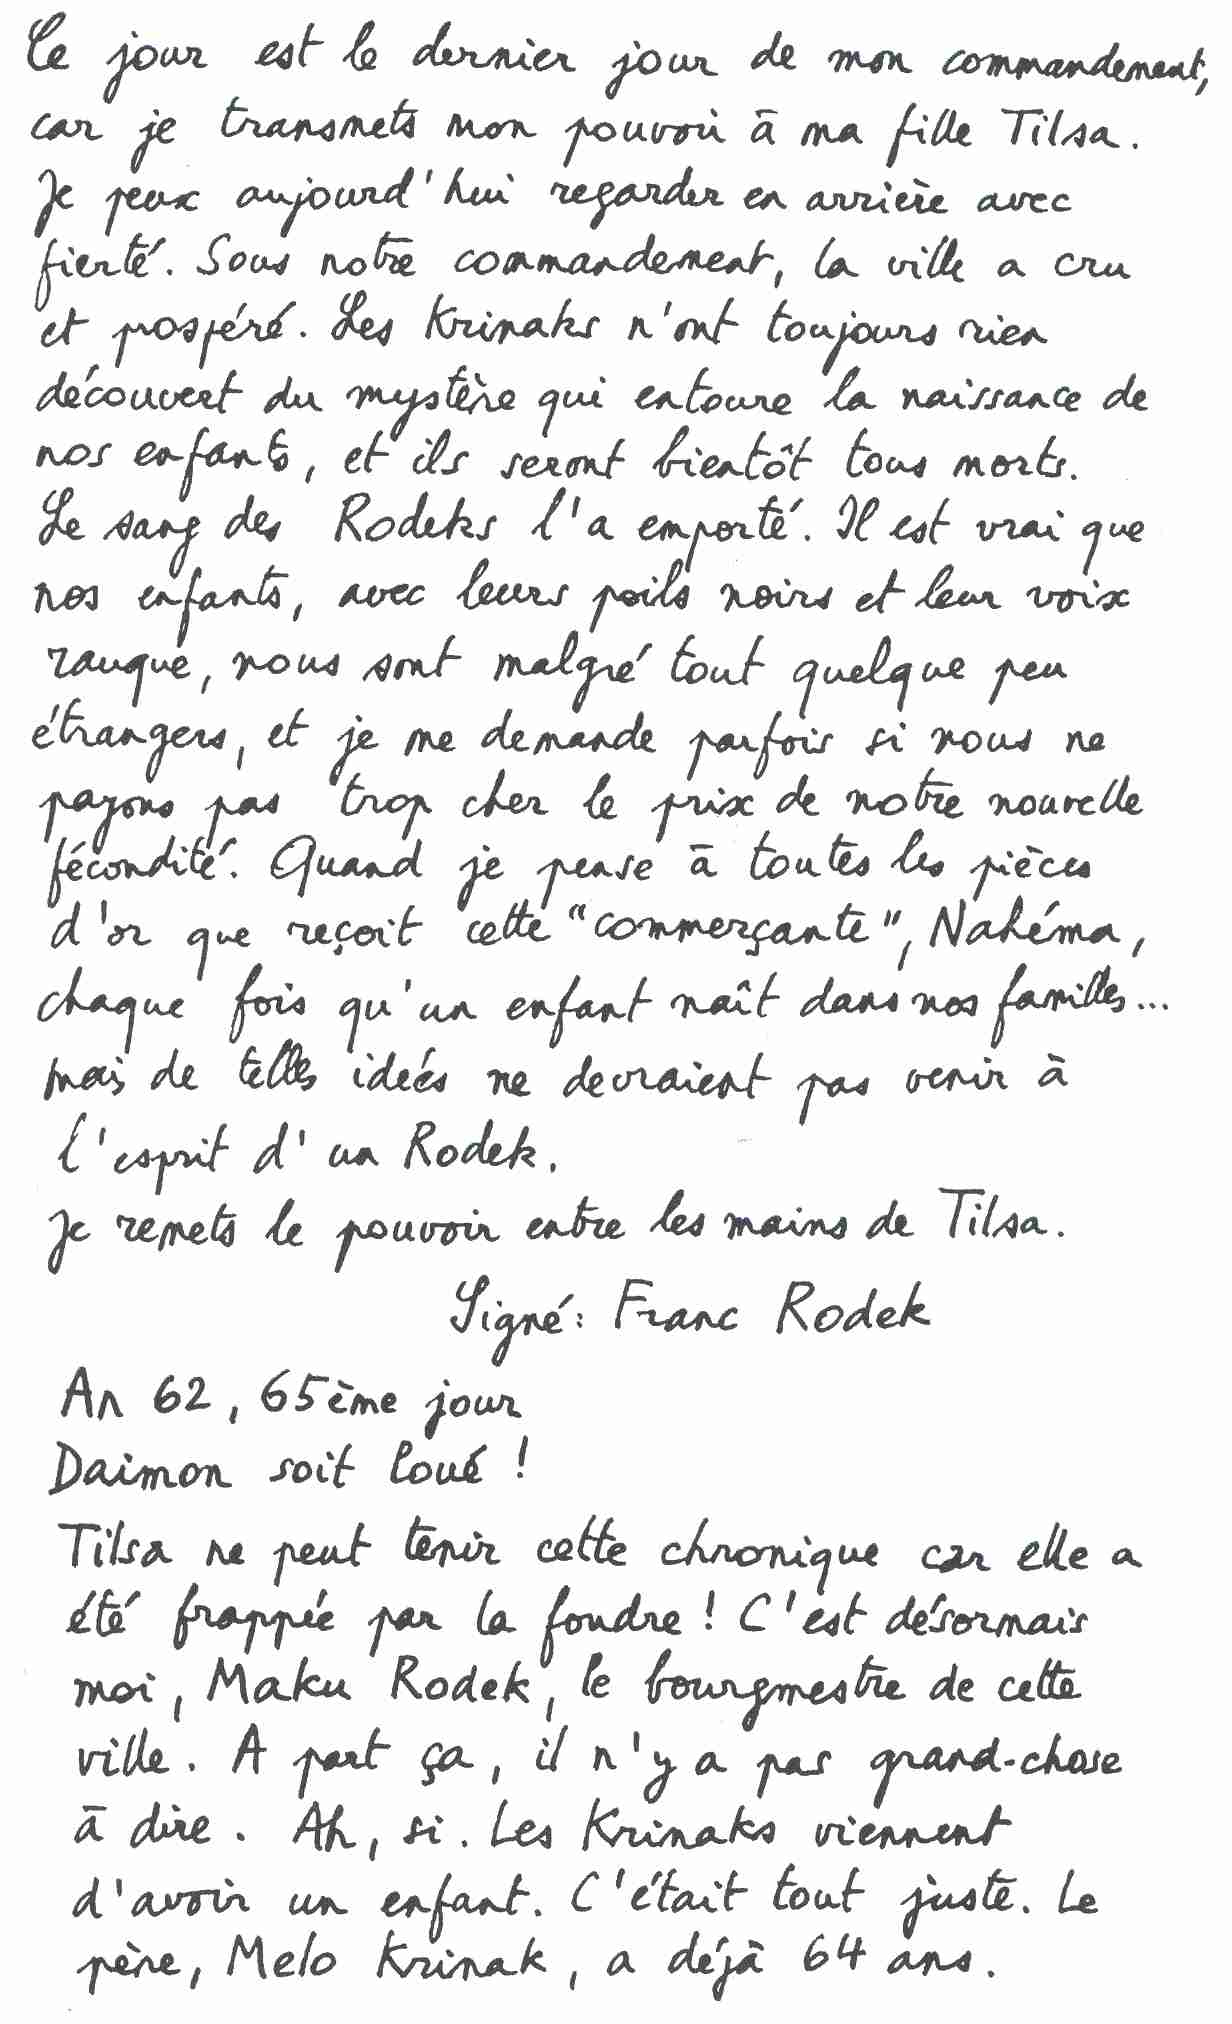 Ce jour est le dernier jour de mon commandement,
car je transmets mon pouvoir à ma fille Tilsa.
Je peux aujourd'hui regarder en arrière avec
fierté. Sous notre commandement, la ville a cru
et prospéré. Les Krinaks n'ont toujours rien
découvert du mystère qui entoure la naissance de
nos enfants, et ils seront bientôt tous morts.
Le sang des Rodeks l'a emporté. Il est vrai que
nos enfants, avec leurs poils noirs et leur voix
rauque, nous sont malgré tout quelque peu
étrangers, et je me demande parfois si nous ne
payons pas trop cher le prix de notre nouvelle
fécondité. Quand je pense à toutes les pièces
d'or que reçoit cette "commerçante", Nahéma,
chaque fois qu'un enfant naît dans nos familles...
mais de telles ideés ne devraient pas venir à
l'esprit d'un Rodek.
Je remets le pouvoir entre les mains de Tilsa.
Signé: Franc Rodek
An 62, 65ème jour
Daimon soit loué !
Tilsa ne peut tenir cette chronique car elle a
été frappée par la foudre ! C'est désormais
moi, Maku Rodek, le bourgmestre de cette
ville. A part ça, il n'y a pas grand-chose
à dire. Ah, si. Les Krinaks viennent
d'avoir un enfant. C'était tout juste. Le
père, Melo Krinak, a déjà 64 ans.